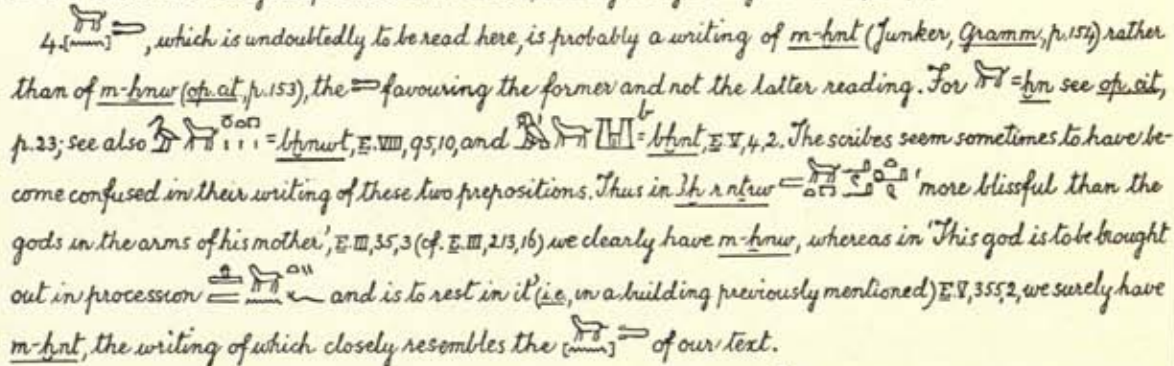 4.[ ] , which is undoubtedly to be read here, is probably a writing of m-ḫnt (Junker, Gramm., p. 154) rather
than of m-ẖnw (op. cit., p. 153), the favouring the former and not the latter reading. For =ẖn see op. cit.,
p. 23; see also =bḫnwt, E. VIII, 95, 10, and b =bḫnt, E. V, 4, 2. The scribes seem sometimes to have be-
come confused in their writing of these two prepositions. Thus in ꜣḫ r nṯrw 'more blissful than the
gods in the arms of his mother', E. III, 35, 3 (cf. E. III, 213, 16) we clearly have m-ẖnw, whereas in 'This god is to be brought
out in procession and is to rest in it' (i.e., in a building previously mentioned) E. V, 355, 2, we surely have
m-ḫnt, the writing of which closely resembles the [ ] of our text.